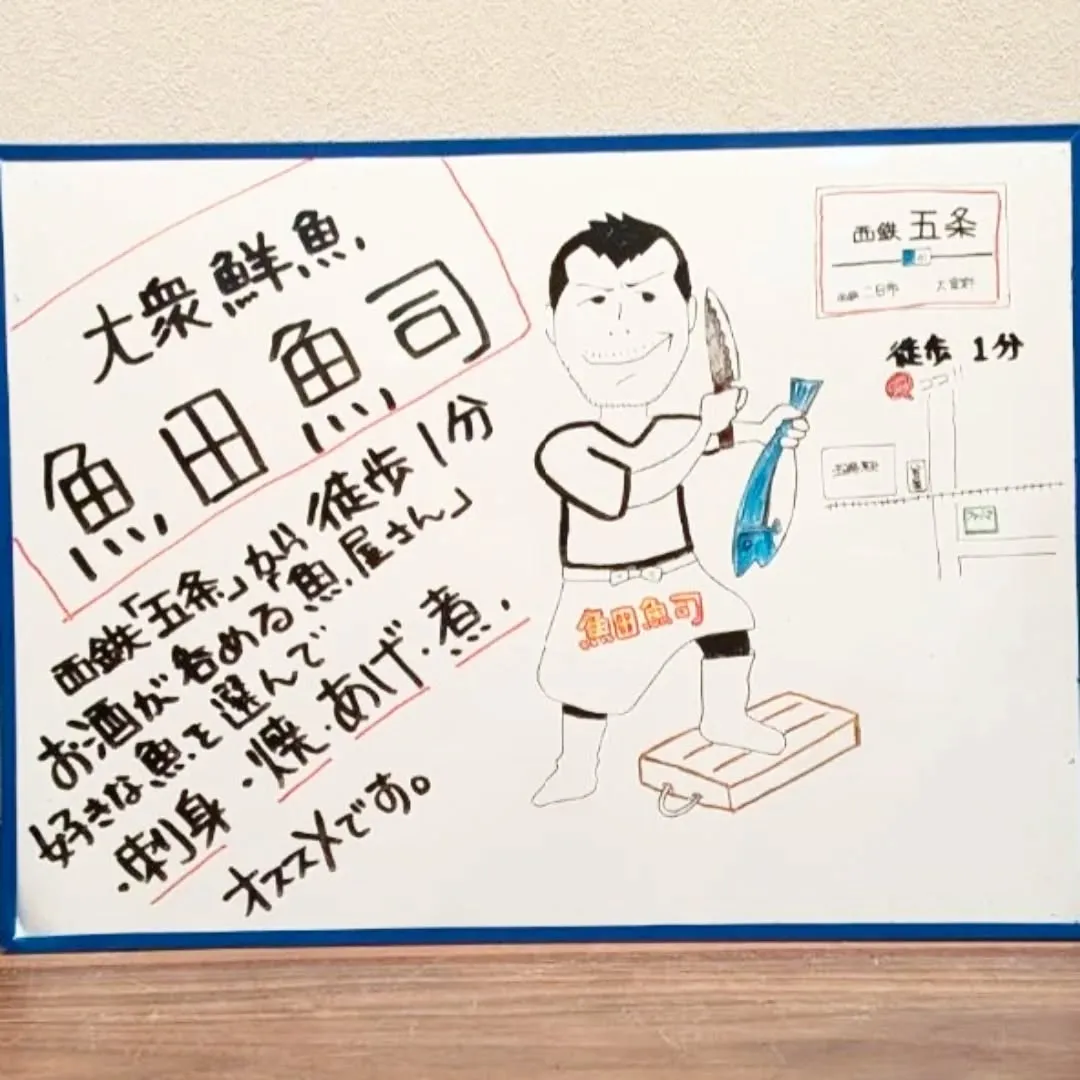 大衆鮮魚
魚田魚司
西鉄「五条」から徒歩1分
お酒が呑める「魚屋さん」
好きな魚を選んで
・刺身・焼・あげ・煮・
オススメです。
魚田魚司
西鉄 五条
西鉄二日市 大宰府
徒歩 1分
ココ!!
五条駅
ファミマ